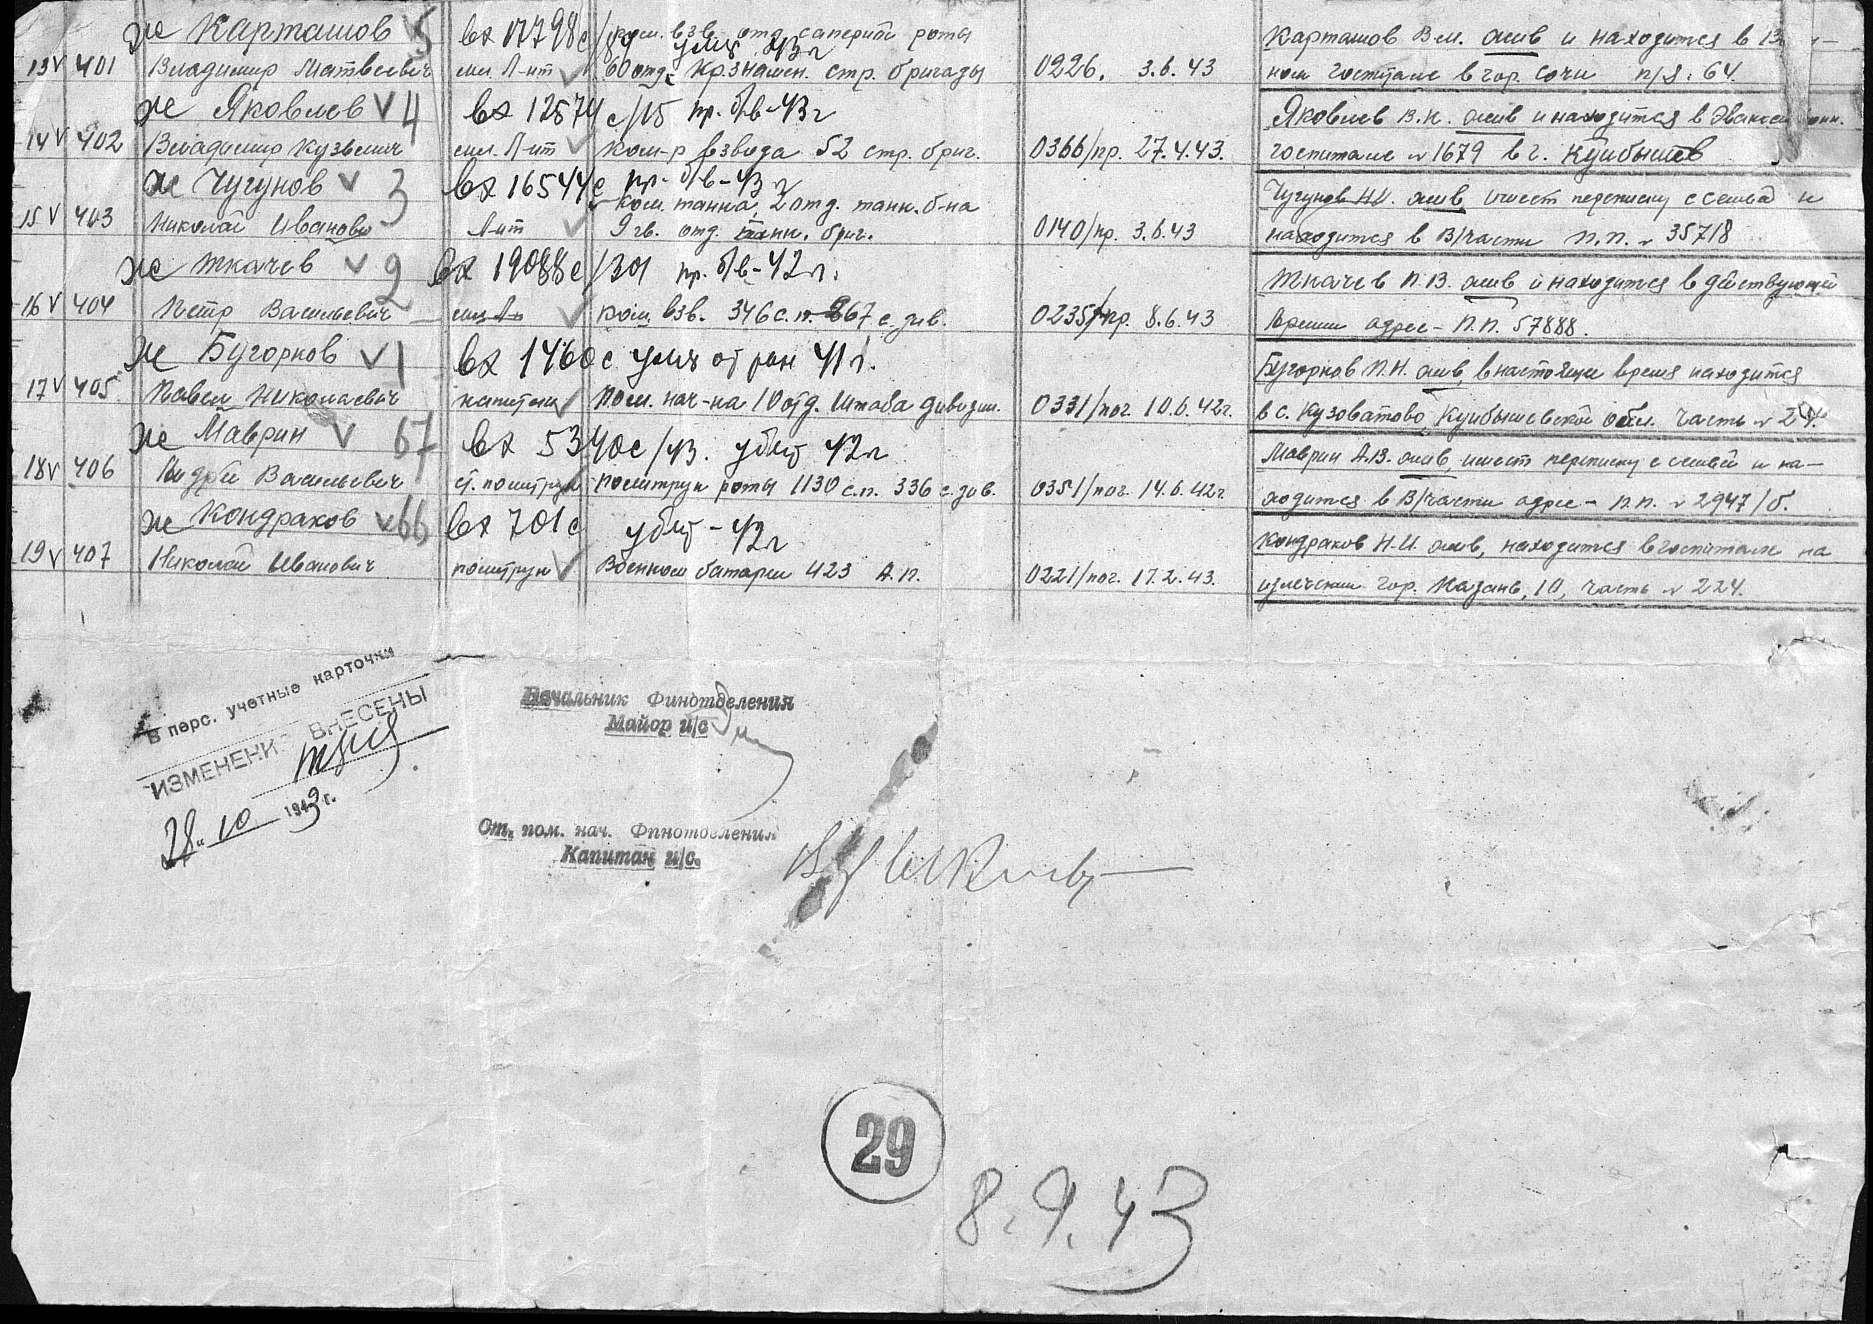 ж Карташов V 5 вх 17798с/ ком. взв. отд. саперной роты Карташов В.М. жив и находится в
умер 43 г
13 V 401 Владимир Матвеевич мл. Л-нт V 60 отд. Кр.знамен. стр. бригады 0226. 3.6.43 ном госпитале в гор. Сочи п/я. 64.
ж Яковлев V 4 вх 12574 с/15 пр. б/в-43 г Яковлев В.К. жив и находится в Эвакоси
14 V 402 Владимир Кузьмич мл. Л-нт V ком-р взвода 52 стр. бриг. 0366/пр. 27.4.43. госпитале № 1679 в г. Куйбышев
ж Чугунов V 3 вх 16544с пр. б/в-43 г Чугунов Н.И. жив, имеет переписку с семьей и
ком. танка, 2 отд. танк. б-на
15 V 403 Николай Иванович Л-нт V 9 гв. отд. танк. бриг. 0140/пр. 3.6.43 находится в В/части п.п. № 35718
ж Ткачев V 2 вх 19088с/301 пр. б/в-42 г. Ткачев П.В. жив и находится в действующей
16 V 404 Петр Васильевич V ком. взв. 346 с.п. 967 с. див. 0235/пр. 8.6.43 Армии адрес - П.П. 57888.
ж Бугорков V 1 вх 1460с умер от ран 41 г. Бугорков П.Н. жив, в настоящее время находится
17 V 405 Павел Николаевич капитан V Пом. нач-ка 1 отд. Штаба дивизии. 0331/пог. 10.6.42г. в с. Кузоватово, Куйбышевской обл. часть № 24.
ж Маврин V 67 вх 5340с/43. убит 42 г Маврин А.В. жив, имеет переписку с семьей и на-
18 V 406 Андрей Васильевич ст. политрук V политрук роты 1130 с.п. 336 с. див. 0351/пог. 14.6.42г. ходится в В/части адрес - п.п. № 2947/б.
ж Кондраков V 66 вх 701с убит - 42 г Кондраков Н.И. жив, находится в госпитале на
19 V 407 Николай Иванович политрук V Военком батареи 423 А.П. 0221/пог. 17.2.43. излечении гор. Казань, 10, часть № 224.
В перс. учетные карточки
ИЗМЕНЕНИЯ ВНЕСЕНЫ
28.10 1943 г.
Начальник Финотделения
Майор и/с
Ст. пом. нач. Финотделения
Капитан и/с.
29
8.9.43